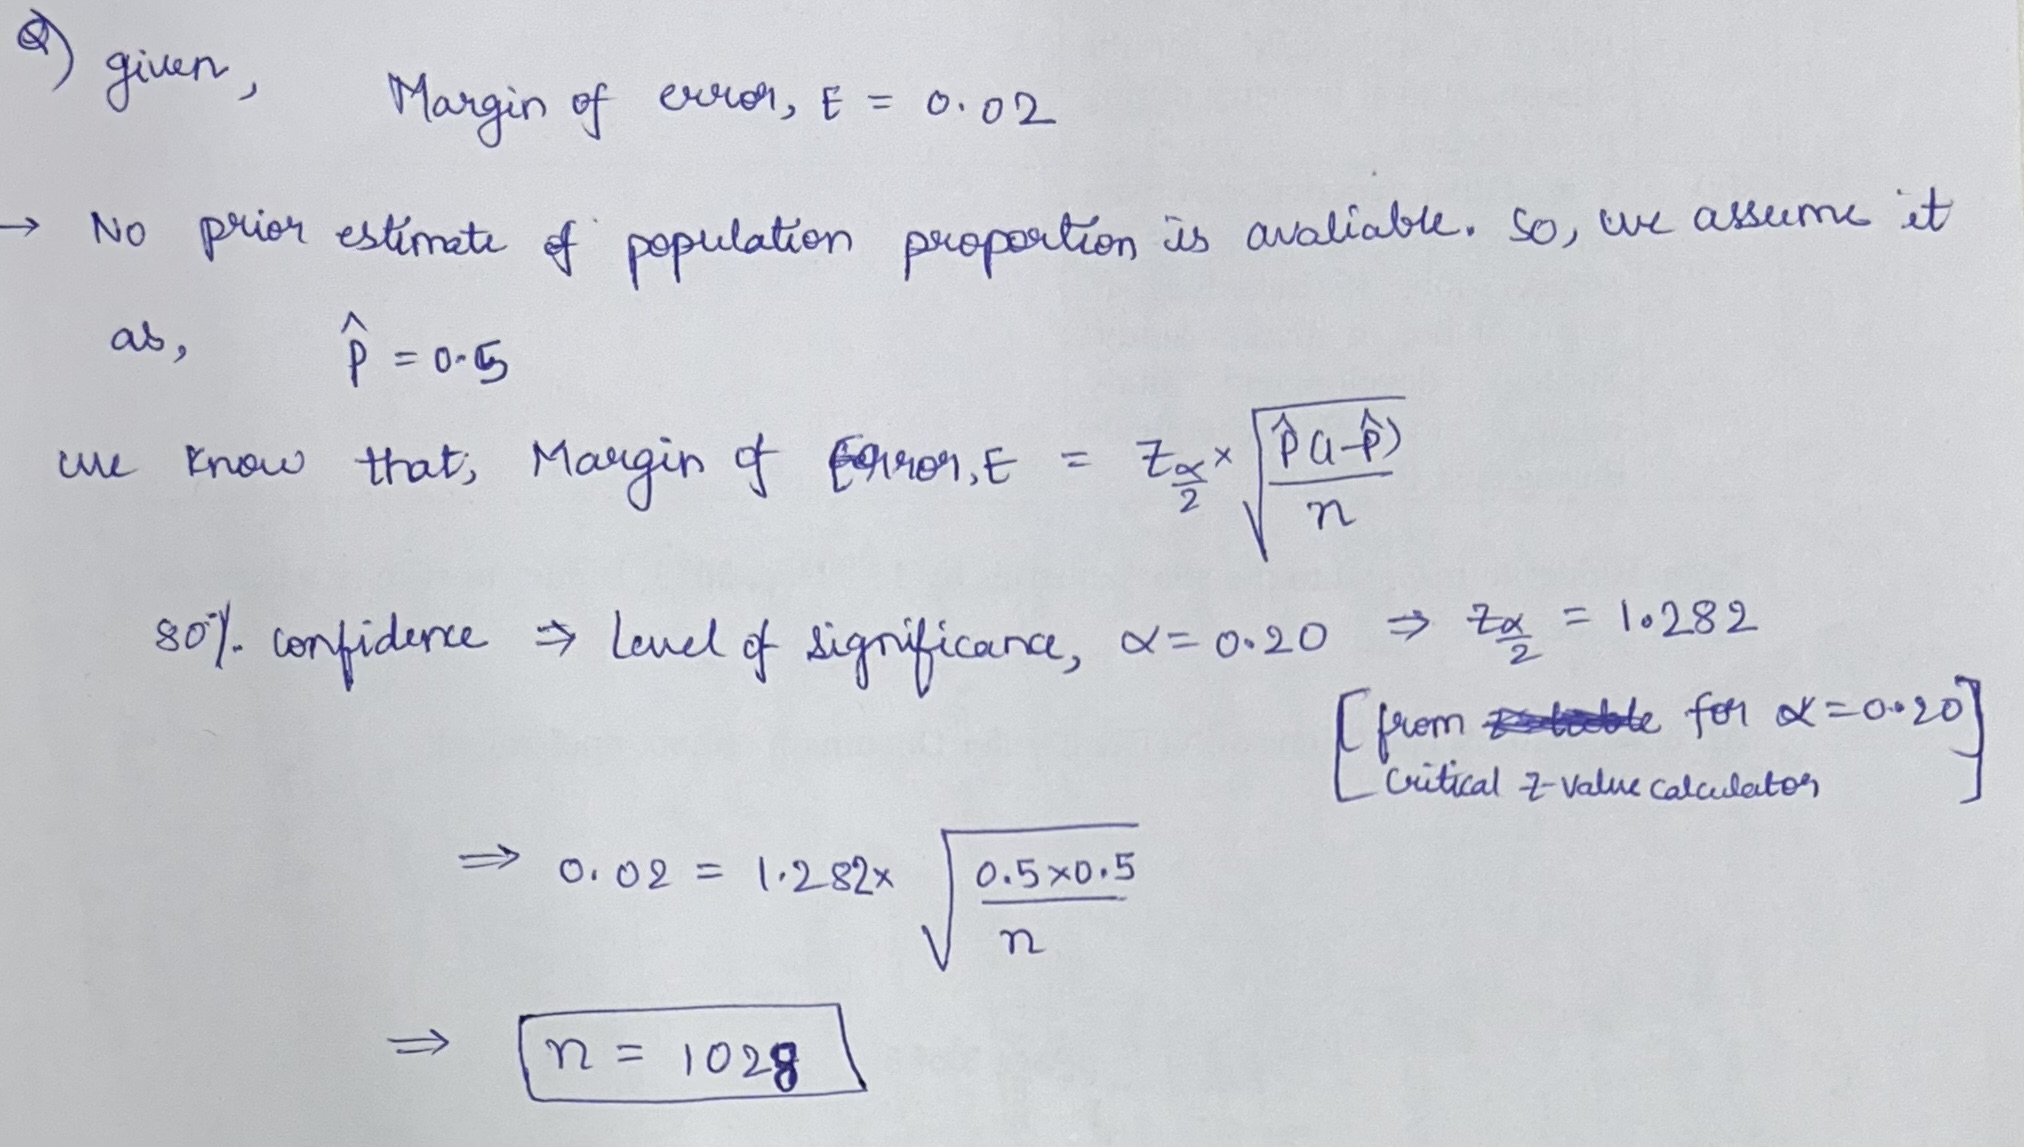 Q) given, Margin of error, E = 0.02
→ No prior estimate of population proportion is avaliable. So, we assume it
as, p̂ = 0.5
we know that, Margin of Error, E = Z_{α/2} × √(p̂(1-p̂)/n)
80% confidence ⇒ Level of significance, α = 0.20 ⇒ Z_{α/2} = 1.282
[from for α = 0.20]
Critical z-value calculator
⇒ 0.02 = 1.282 × √(0.5×0.5/n)
⇒ n = 1028